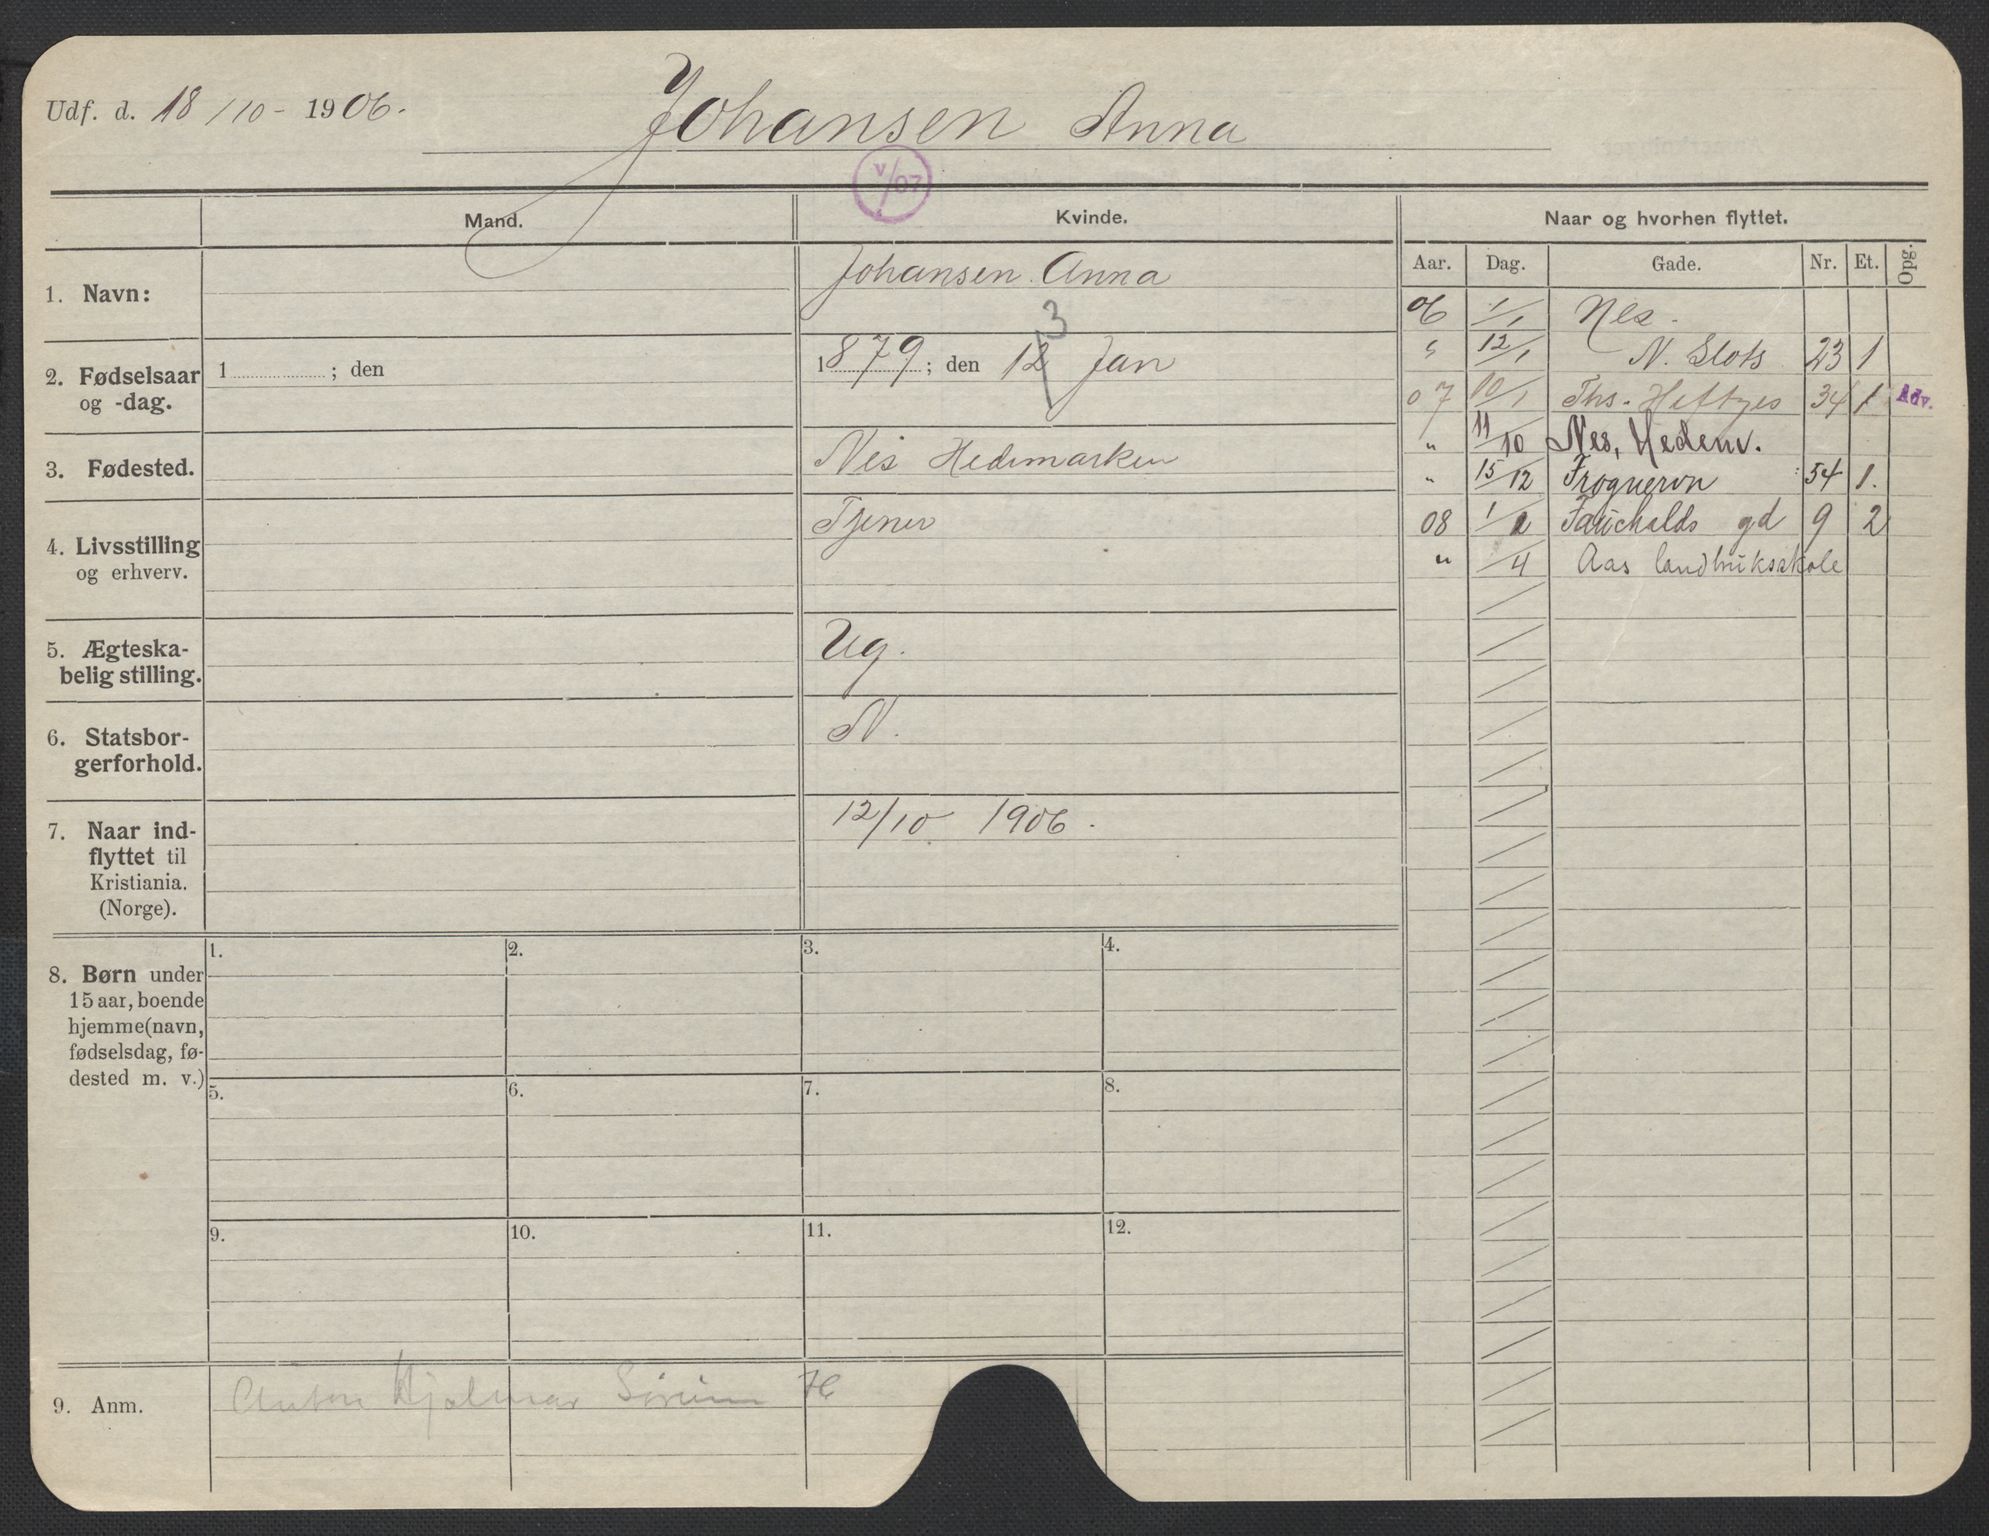 Udf. d. 18/10 - 1906.
Johansen Anna
V/07
Mand.
Kvinde.
Naar og hvorhen flyttet.
Aar. Dag. Gade. Nr. Et. Opg.
1. Navn:
Johansen Anna
2. Fødselsaar
og -dag.
1 ; den
3
1879; den 12 Jan
3. Fødested.
Nes Hedemarken
4. Livsstilling
og erhverv.
Tjener
5. Ægteska-
belig stilling.
Ug.
6. Statsbor-
gerforhold.
N.
7. Naar ind-
flyttet til
Kristiania.
(Norge).
12/10 1906.
06 1/1 Nes.
" 12/1 N. Slots 23 1
07 10/1 Ths. Heftyes 34 1 Adv.
" 11/10 Nes, Hedem.
" 15/12 Frognervn 54 1.
08 1/2 Fauchalds gd 9 2
" /4 Aas landbruksskole
8. Børn under
15 aar, boende
hjemme (navn,
fødselsdag, fø-
dested m. v.)
1. 2. 3. 4.
5. 6. 7. 8.
9. 10. 11. 12.
9. Anm.
Anton Hjalmar